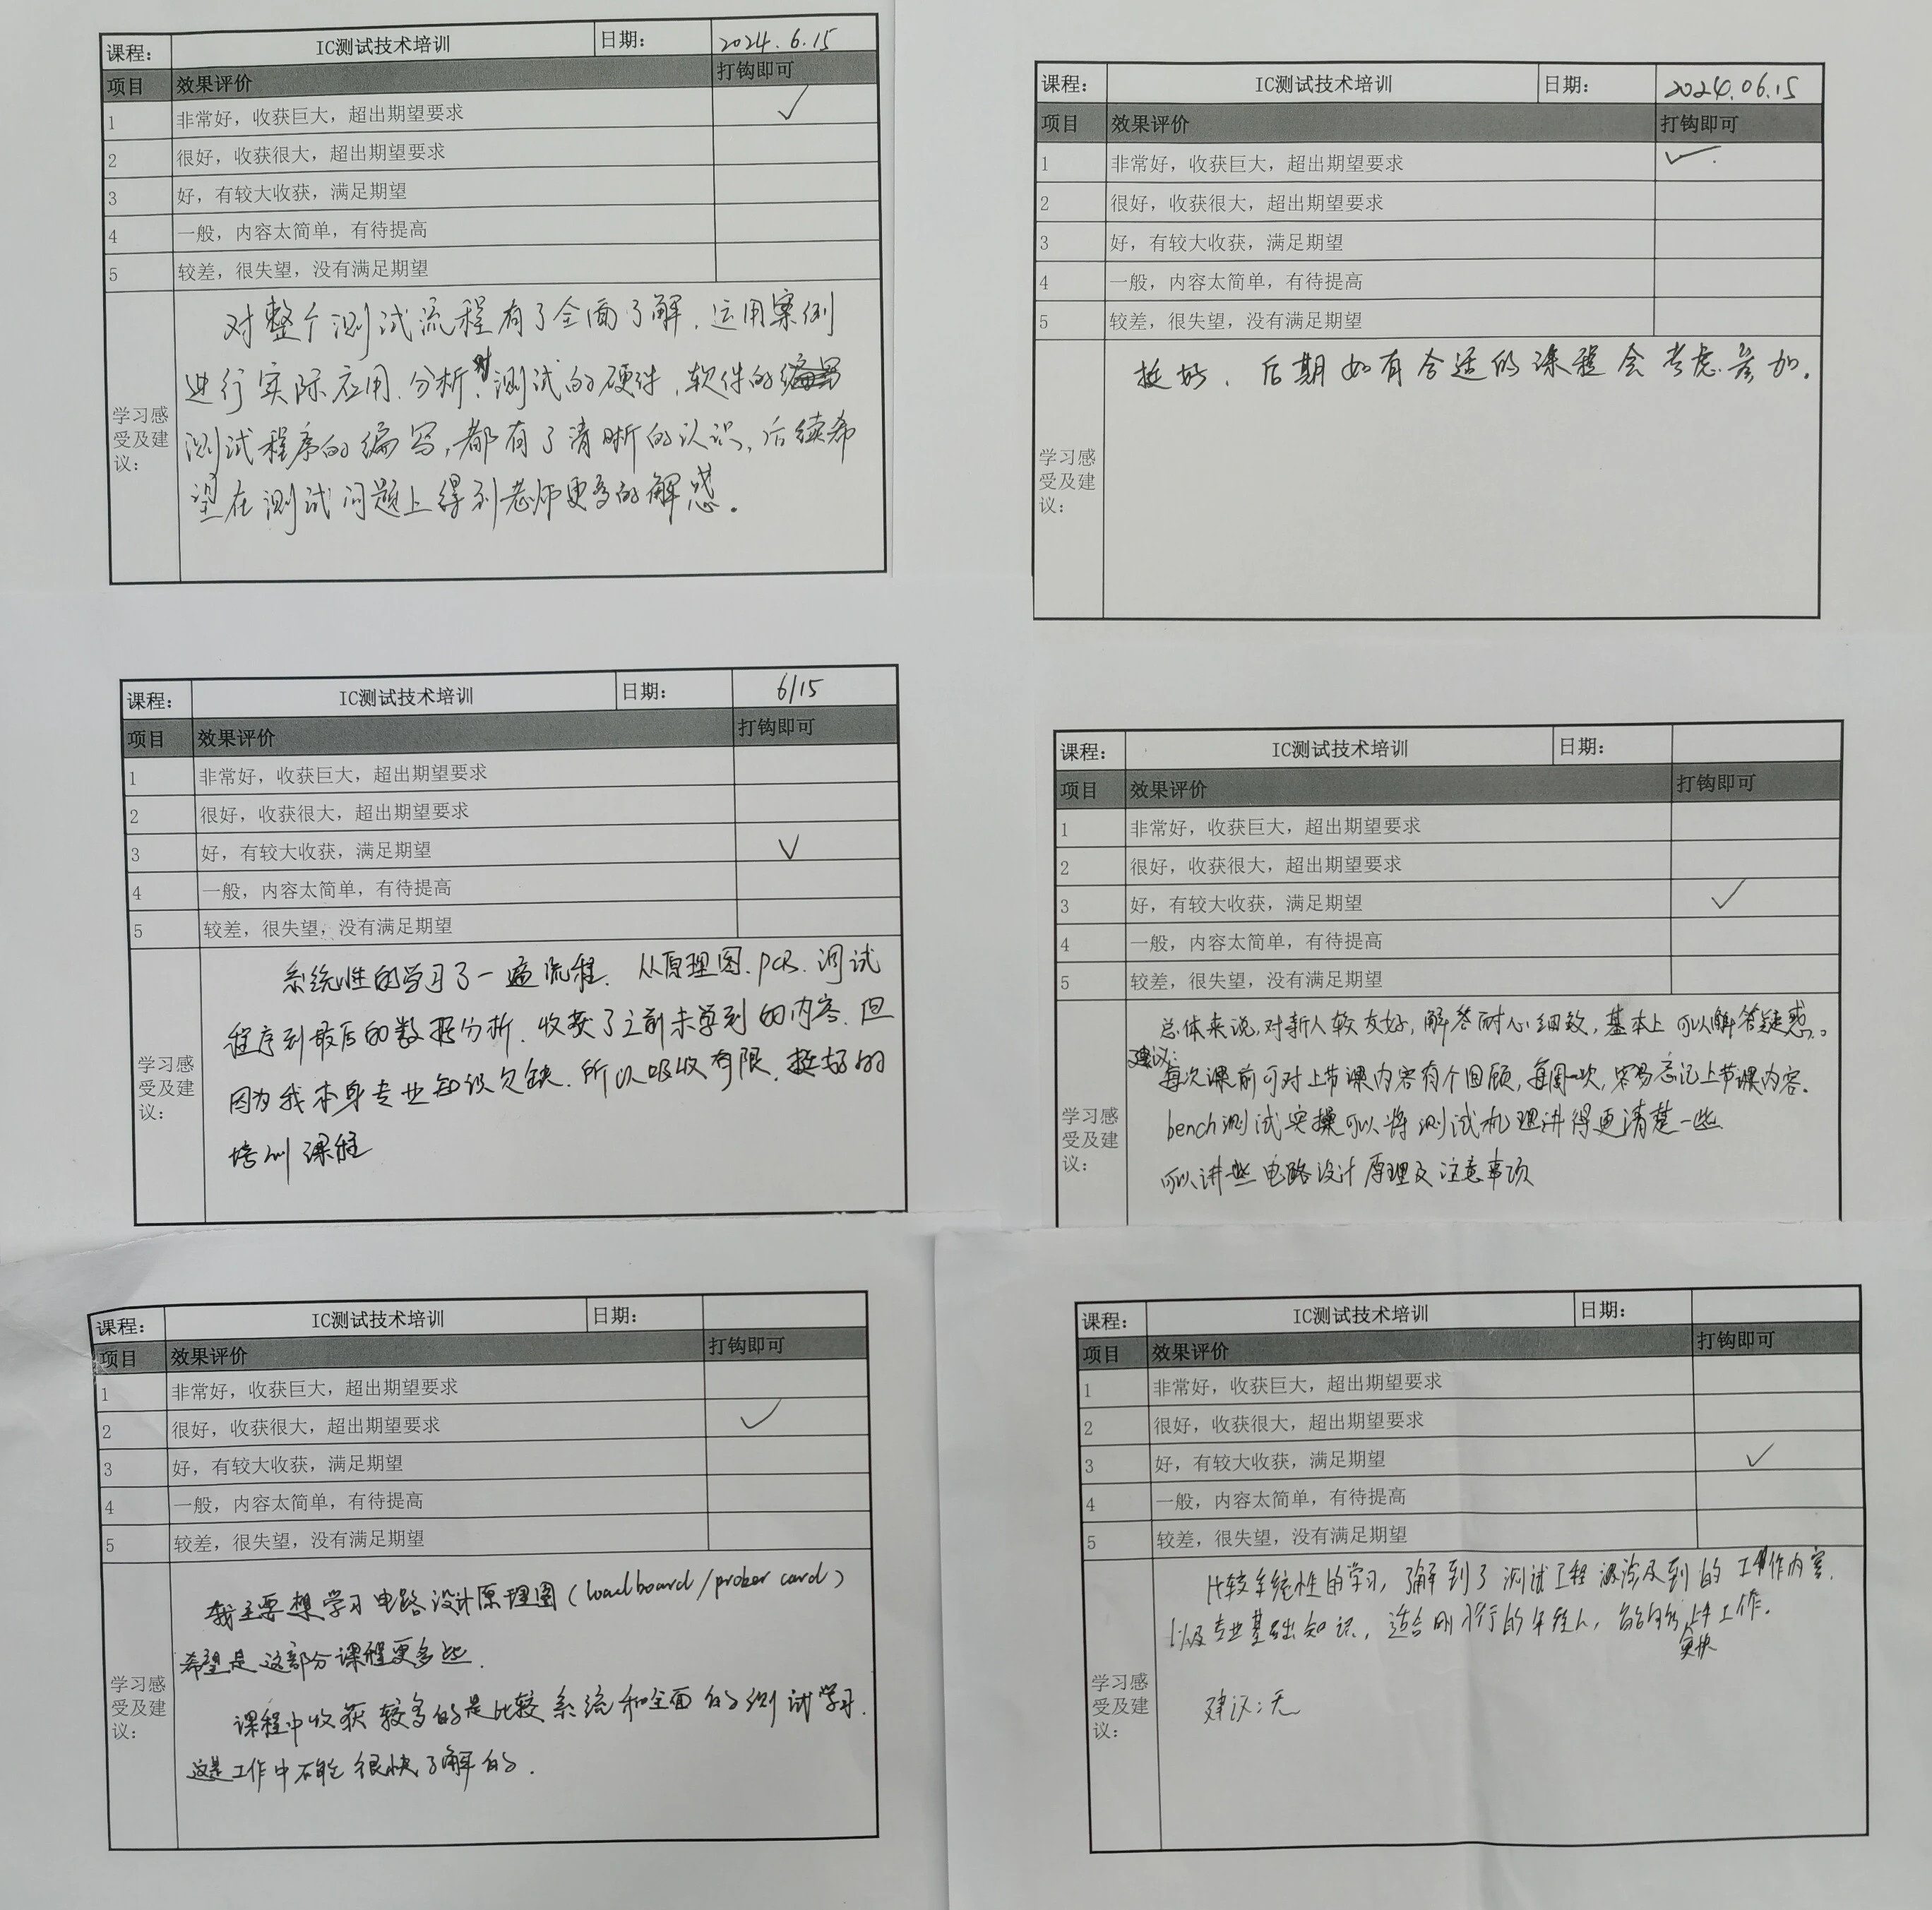 课程： IC测试技术培训 日期： 2024.6.15
项目 效果评价 打钩即可
1 非常好，收获巨大，超出期望要求 ✓
2 很好，收获很大，超出期望要求
3 好，有较大收获，满足期望
4 一般，内容太简单，有待提高
5 较差，很失望，没有满足期望
学习感
受及建
议：
对整个测试流程有了全面了解，运用案例
进行实际应用、分析，对测试的硬件，软件的
测试程序的编写，都有了清晰的认识，后续希
望在测试问题上得到老师更多的解惑。
课程： IC测试技术培训 日期： 2024.06.15
项目 效果评价 打钩即可
1 非常好，收获巨大，超出期望要求 ✓
2 很好，收获很大，超出期望要求
3 好，有较大收获，满足期望
4 一般，内容太简单，有待提高
5 较差，很失望，没有满足期望
学习感
受及建
议：
挺好、后期如有合适的课程会考虑参加。
课程： IC测试技术培训 日期： 6/15
项目 效果评价 打钩即可
1 非常好，收获巨大，超出期望要求
2 很好，收获很大，超出期望要求
3 好，有较大收获，满足期望 ✓
4 一般，内容太简单，有待提高
5 较差，很失望，没有满足期望
学习感
受及建
议：
系统性的学习了一遍流程．从原理图、PCB、测试
程序到最后的数据分析．收获了之前未学到的内容．但
因为我本身专业知识欠缺．所以吸收有限．挺好的
培训课程
课程： IC测试技术培训 日期：
项目 效果评价 打钩即可
1 非常好，收获巨大，超出期望要求
2 很好，收获很大，超出期望要求
3 好，有较大收获，满足期望 ✓
4 一般，内容太简单，有待提高
5 较差，很失望，没有满足期望
学习感
受及建
议：
总体来说，对新人较友好，解答耐心细致，基本上可以解答疑惑。
建议：
每次课前可对上节课内容有个回顾，每周一次，容易忘记上节课内容．
bench测试实操可以将测试机理讲得更清楚一些
可以讲些电路设计原理及注意事项
课程： IC测试技术培训 日期：
项目 效果评价 打钩即可
1 非常好，收获巨大，超出期望要求
2 很好，收获很大，超出期望要求 ✓
3 好，有较大收获，满足期望
4 一般，内容太简单，有待提高
5 较差，很失望，没有满足期望
学习感
受及建
议：
我主要想学习电路设计原理图（loadboard/prober card）
希望是这部分课程更多些．
课程中收获较多的是比较系统和全面的测试学习．
这是工作中不能很快了解的．
课程： IC测试技术培训 日期：
项目 效果评价 打钩即可
1 非常好，收获巨大，超出期望要求
2 很好，收获很大，超出期望要求
3 好，有较大收获，满足期望 ✓
4 一般，内容太简单，有待提高
5 较差，很失望，没有满足期望
学习感
受及建
议：
比较系统性的学习，了解到了测试工程涉及到的工作内容．
以及专业基础知识，适合刚入行的年轻人，能够更快上手工作．
建议：无